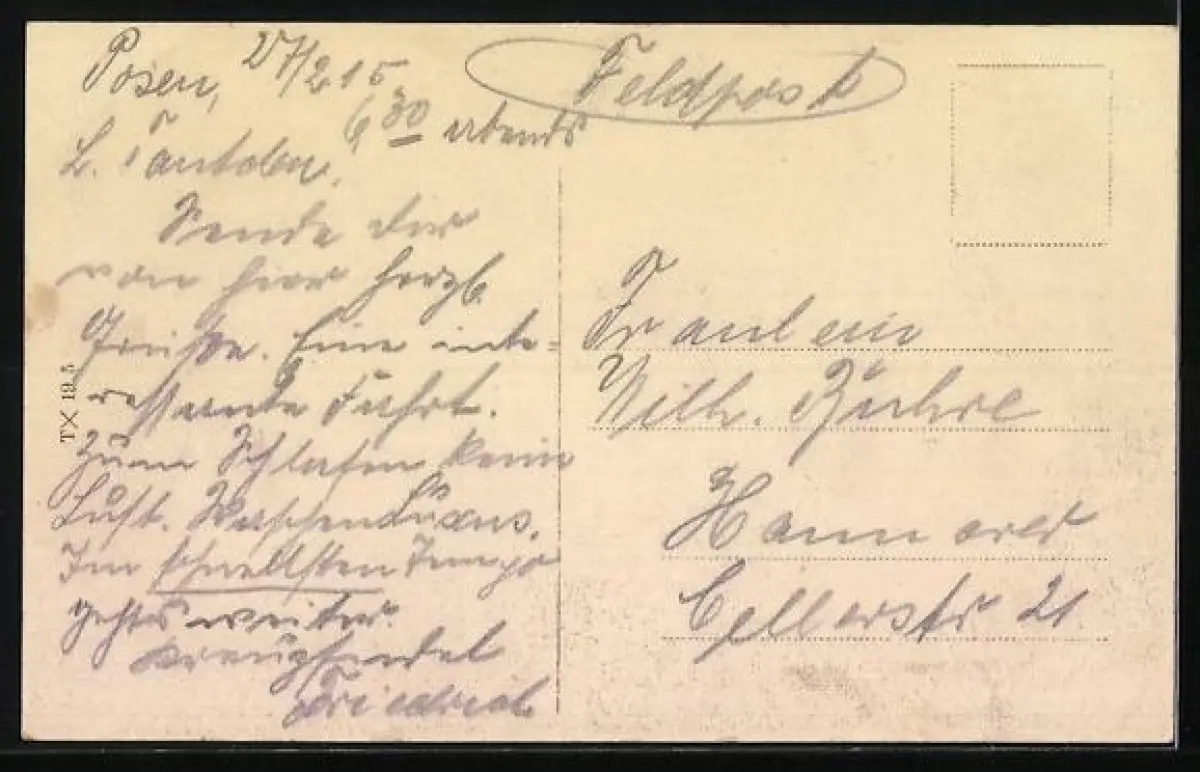 Posen, 27/2 15
6 30 abends
L. Tantchen,
Sende dir
von hier herzl.
Grüße. Eine inte-
ressante Fahrt.
Zum Schlafen keine
Lust. Waschen Luxus.
Im schnellsten Tempo
gehts weiter.
Friedrich
TX 19.5
Feldpost
Fraulein
Wilh.
Hannover
Cellerstr 21